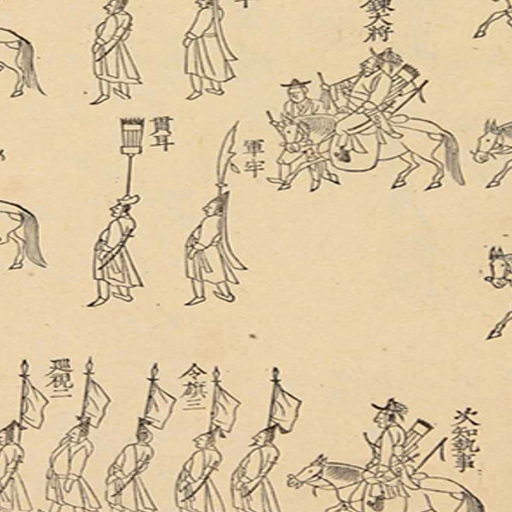 鍊大將
軍牢
貫耳
次知執事
令旗三
巡視二